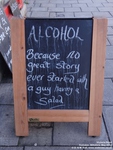 ALCOHOL
Because no
great story
ever started with
a guy having a
Salad